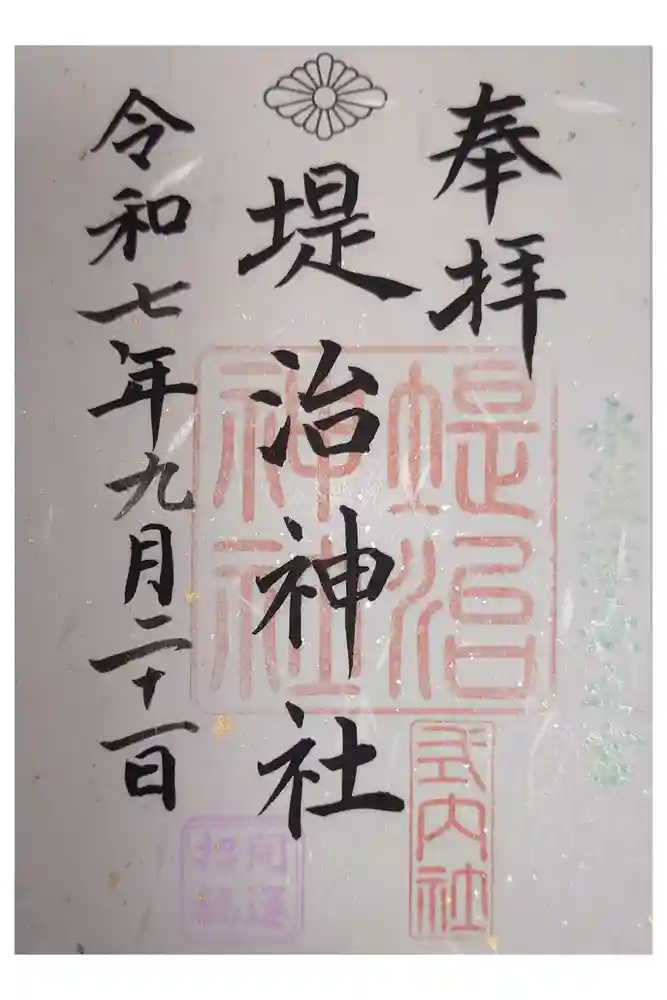 奉拝
堤治神社
堤治
神社
式内社
開運
招福
令和七年九月二十一日